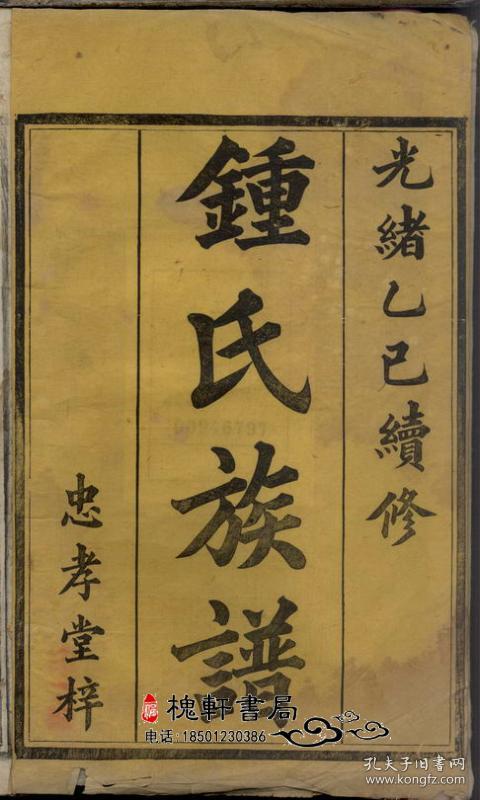 光緒乙巳續修
鍾氏族譜
忠孝堂梓
00946797
槐軒書局
电话:18501230386
孔夫子旧书网
www.kongfz.com